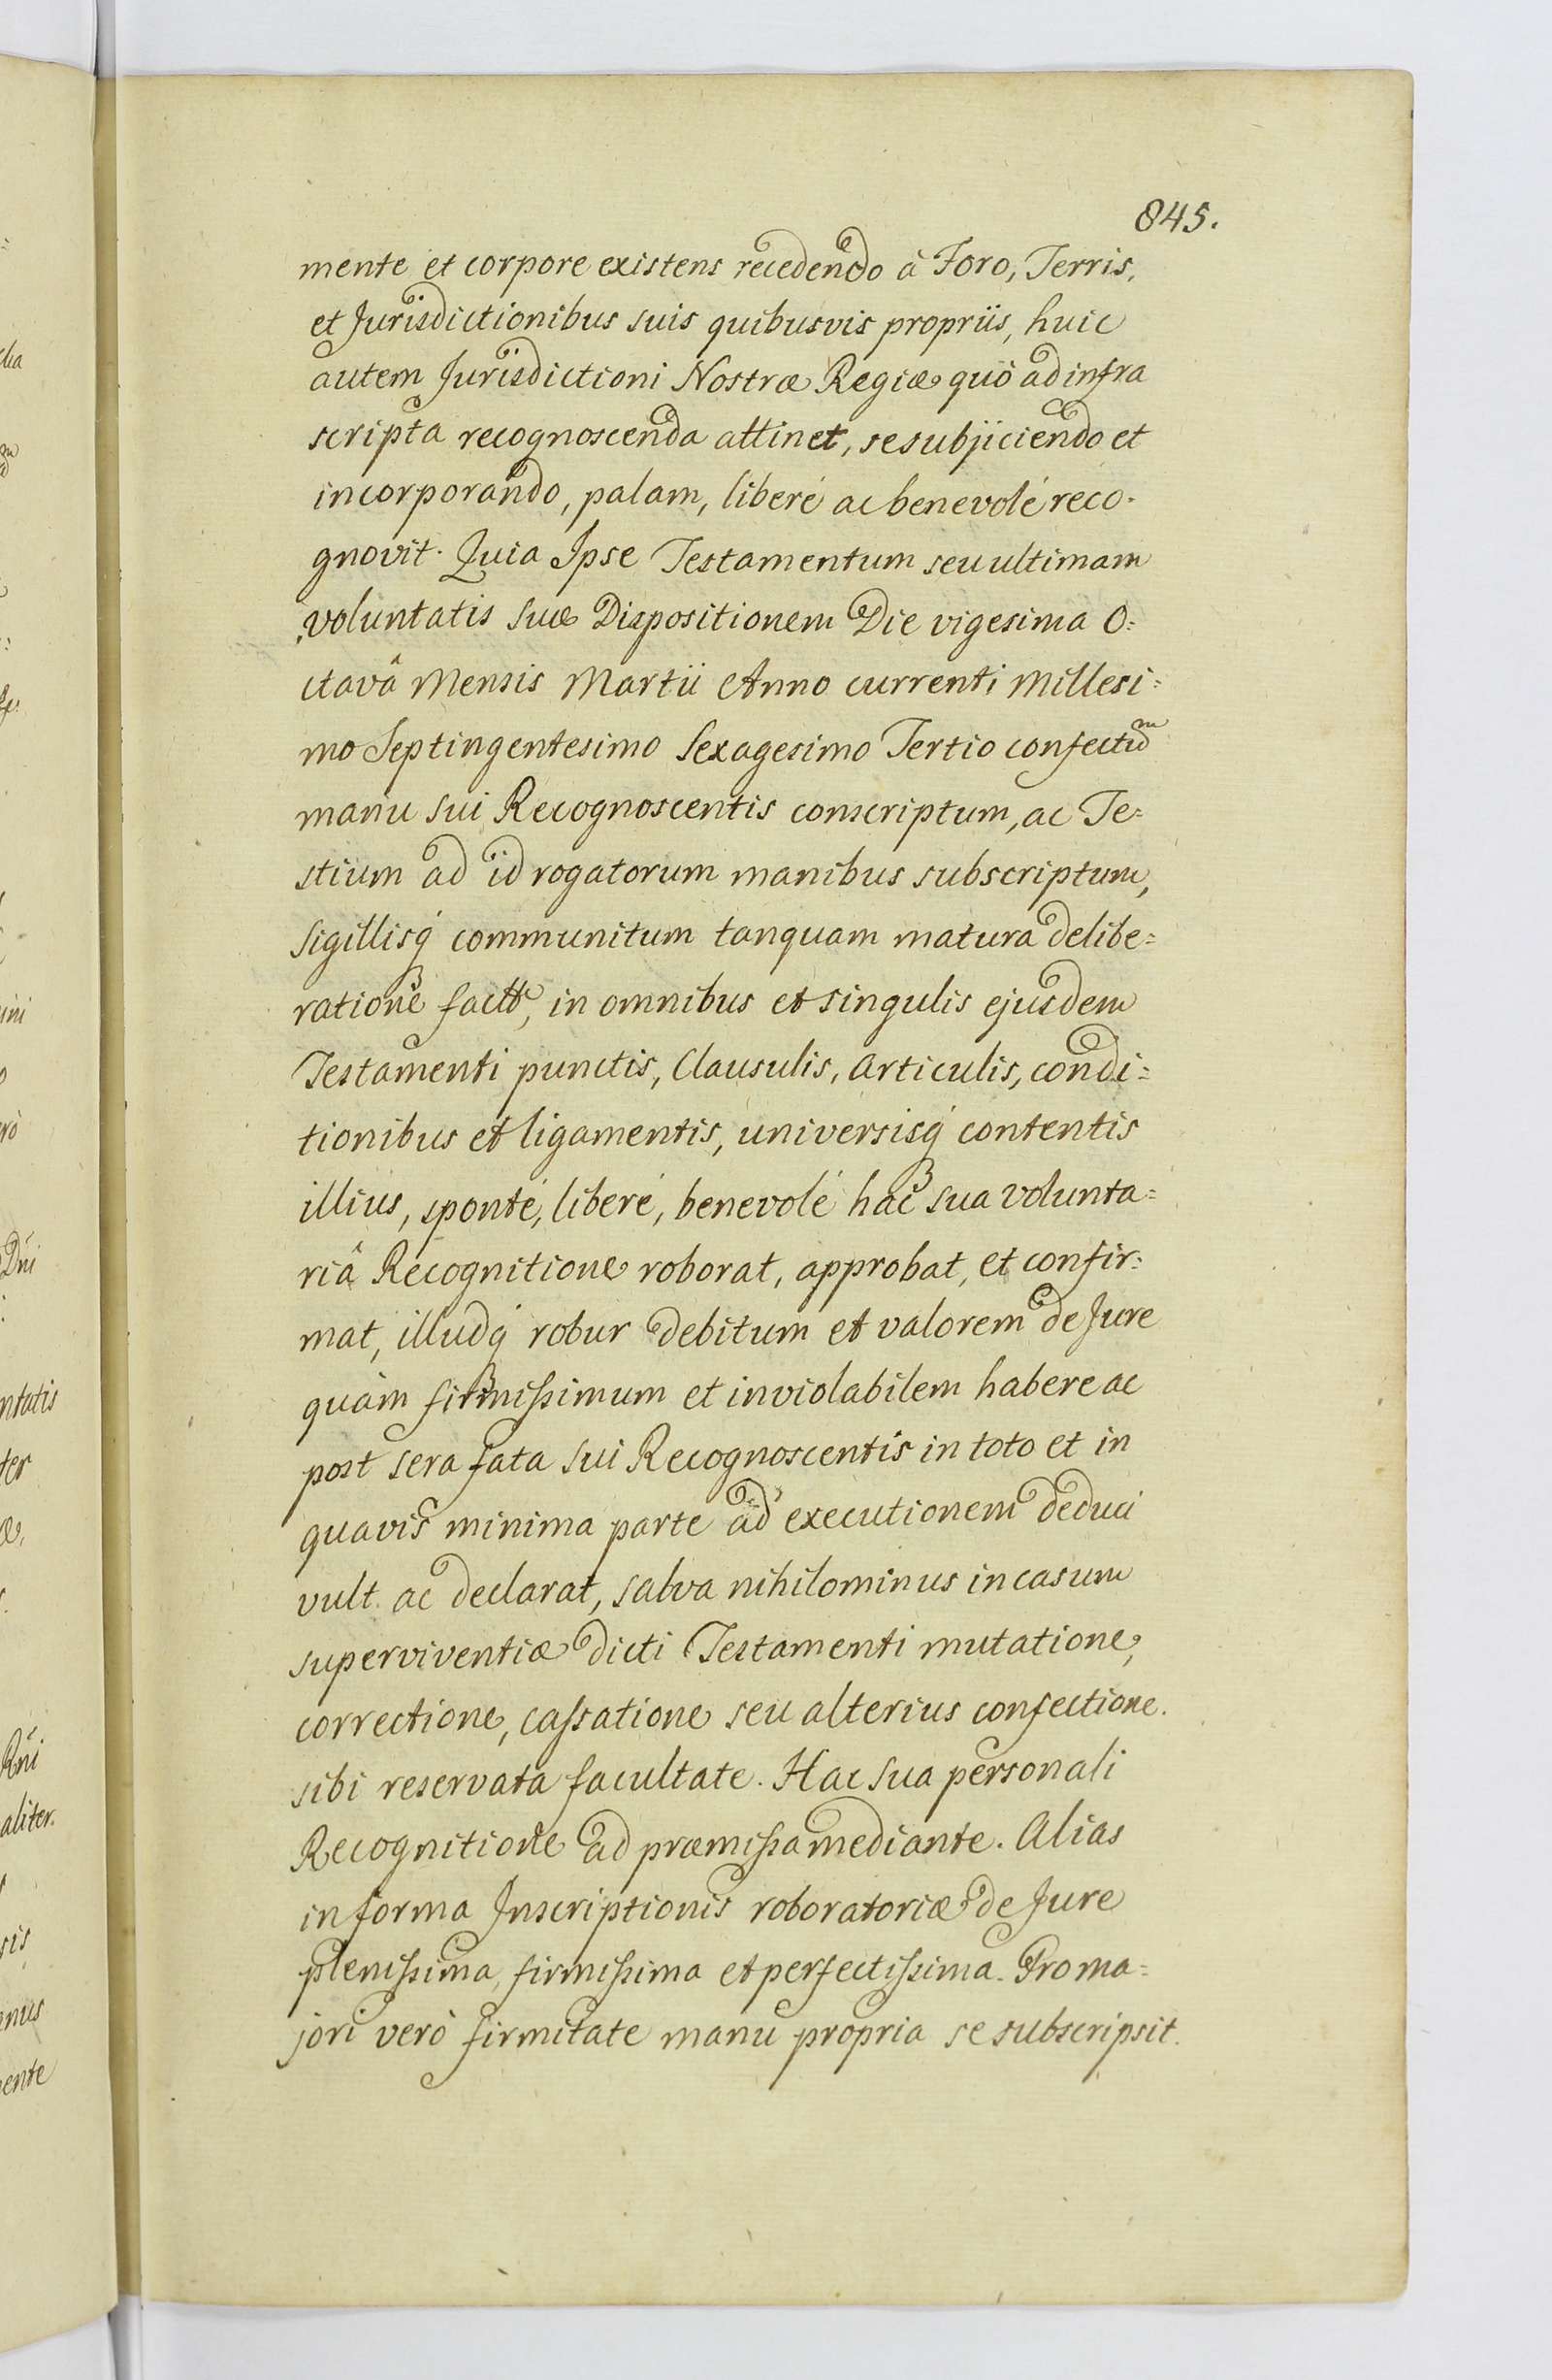 845.
mente et corpore existens recedendo à Foro, Terris,
et Jurisdictionibus suis quibusvis propriis, huic
autem Jurisdictioni Nostræ Regiæ quò ad infra
scripta recognoscenda attinet, se subjiciendo et
incorporando, palam, liberé ac benevolé reco-
gnovit. Quia Ipse Testamentum seu ultimam
voluntatis suæ Dispositionem Die vigesima O=
ctavâ Mensis Martii Anno currenti Millesi=
mo Septingentesimo Sexagesimo Tertio confectũ
manu sui Recognoscentis conscriptum, ac Te=
stium ad id rogatorum manibus subscriptum,
Sigillisq́ communitum tanquam matura delibe=
ratione in omnibus et singulis ejusdem
Testamenti punctis, Clausulis, Articulis, condi=
tionibus et ligamentis, universisq́ contentis
illius, sponté, liberé, benevolé hac sua volunta=
riâ Recognitione roborat, approbat, et confir=
mat, illudq́ robur debitum et valorem de Jure
quàm firmissimum et inviolabilem habere ac
post sera fata sui Recognoscentis in toto et in
quavis minima parte ad executionem deduci
vult ac declarat, salva nihilominus in casum
superviventiæ dicti Testamenti mutatione,
correctione, cassatione seu alterius confectione.
sibi reservata facultate. Hac sua personali
Recognitione ad præmissa mediante. Alias
in forma Inscriptionis roboratoriæ de Jure
plenissima, firmissima et perfectissima. Pro ma=
jori verò firmitate manu propria se subscripsit.
Dni
ntatis
ter
Rni
aliter.
sis
ente